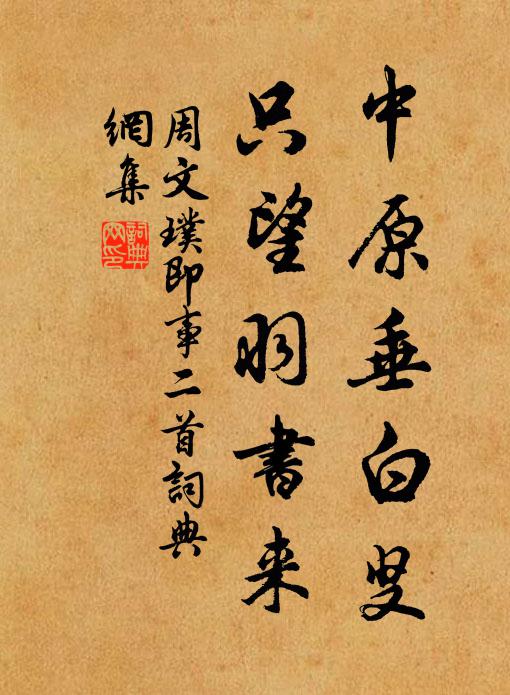 中原垂白叟
只望羽書来
周文璞即事二首詞典
網集
詞典
网印